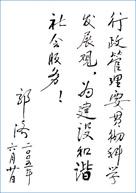 行政管理要贯彻科学
发展观，为建设和谐
社会服务！
郭济
二〇〇五年
六月廿日